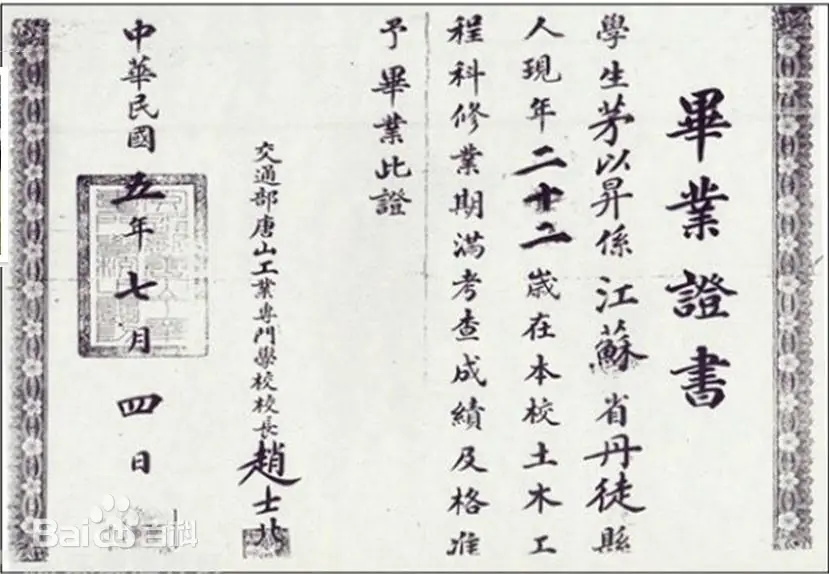 畢業證書
學生茅以昇係江蘇省丹徒縣
人現年二十二歲在本校土木工
程科修業期滿考查成績及格准
予畢業此證
交通部唐山工業專門學校校長趙士北
中華民國五年七月四日
Baidu百科